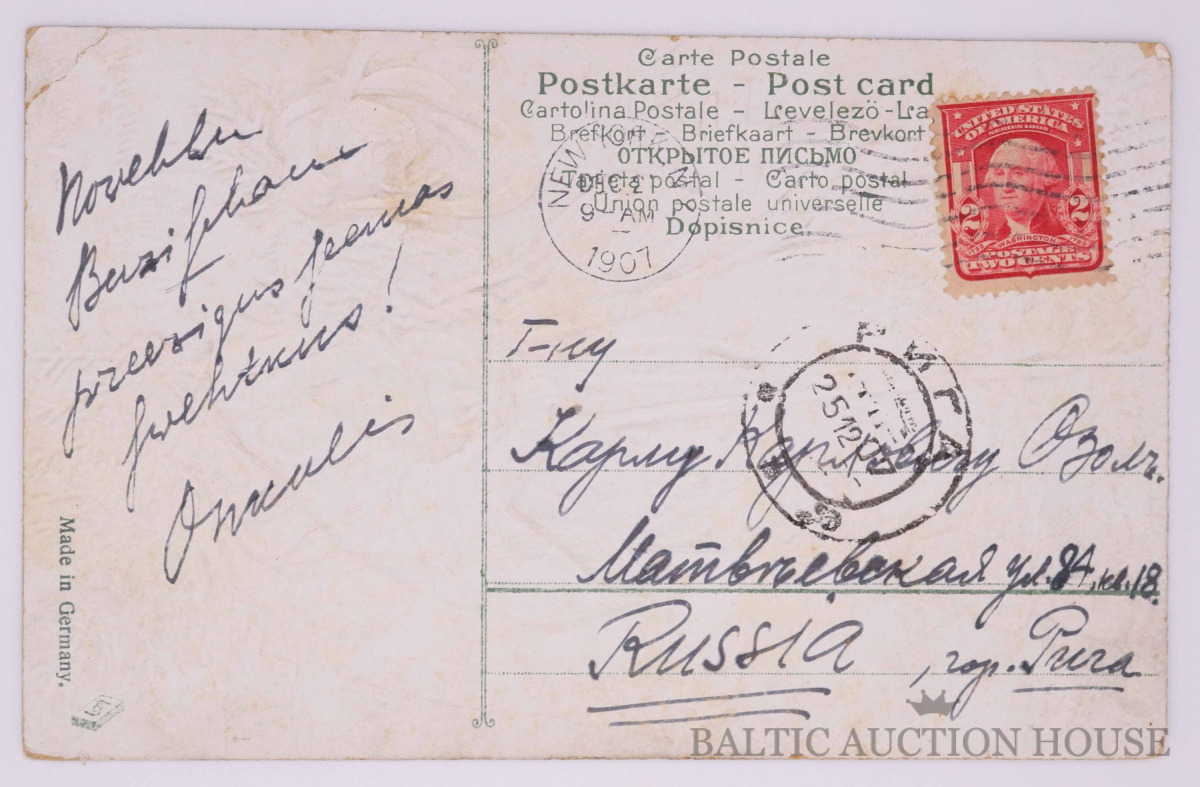 Carte Postale
Postkarte - Post card
Cartolina Postale - Levelezö-La
Brefkort - Briefkaart - Brevkort
ОТКРЫТОЕ ПИСЬМО
Tarjeta postal - Carto postal
Union postale universelle
Dopisnice.
NEW YORK, N.Y.
DEC 2
9- AM
1907
UNITED STATES
OF AMERICA
SERIES 1902
2 2
WASHINGTON
POSTAGE
TWO CENTS
Novehlu
preezigus
swehtkus!
Г-ну
РИГА
25 12 07
Карлу Карловичу Озолъ.
Матвѣевская ул. 84, кв. 18.
RUSSIA, гор. Рига
Made in Germany.
BALTIC AUCTION HOUSE